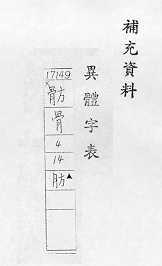 補充資料
異體字表
17149
骯
骨
4
14
肮▲